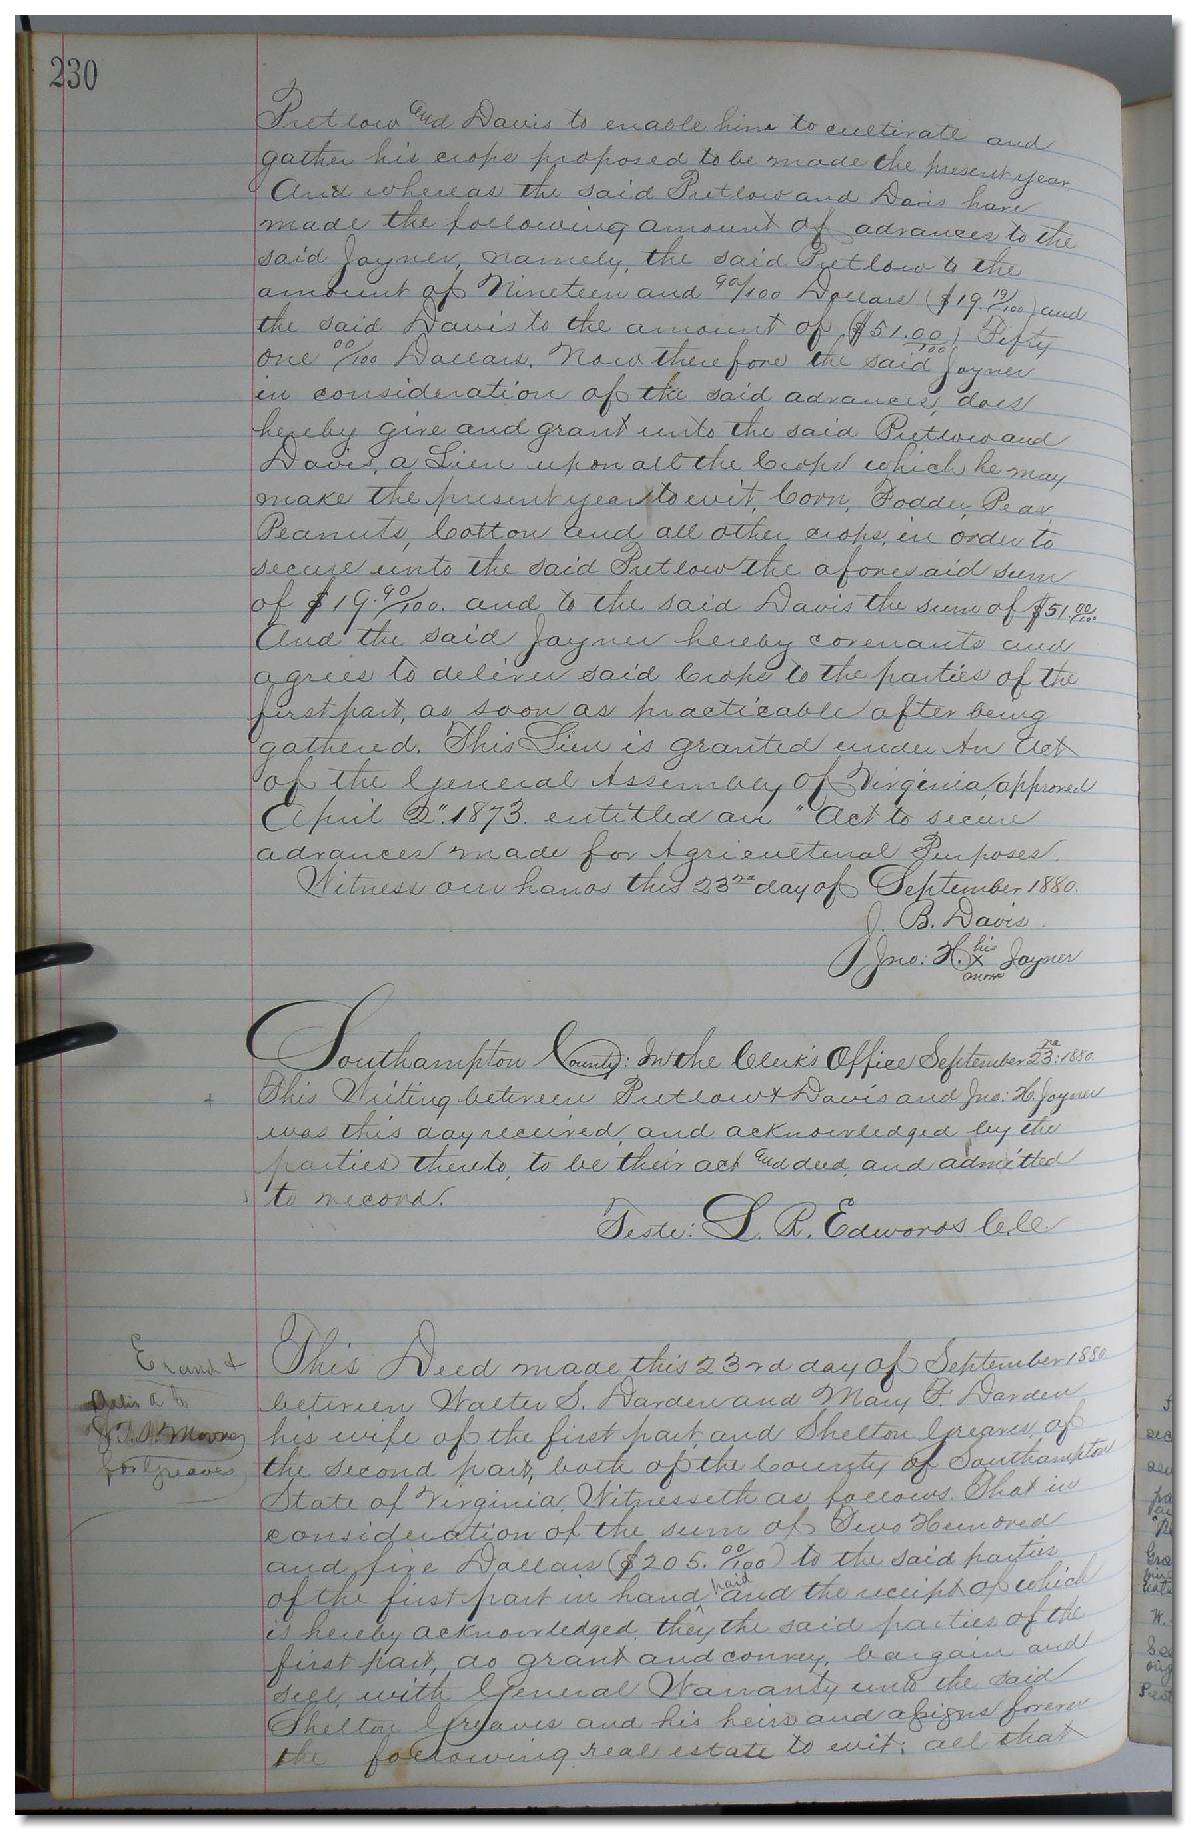 230
Pretlow and Davis to enable him to cultivate and
gather his crops proposed to be made the present year
And whereas the said Pretlow and Davis have
made the following amount of advances to the
said Joyner, namely, the said Pretlow to the
amount of Nineteen and 90/100 Dollars ($19 19/100) and
the said Davis to the amount of ($51.00/100) Fifty
one 00/100 Dollars. Now therefore the said Joyner
in consideration of the said advances, does
hereby give and grant unto the said Pretlow and
Davis, a Lien upon all the Crops which he may
make the present year to wit, Corn, Fodder, Peas,
Peanuts, Cotton and all other crops, in order to
secure unto the said Pretlow the aforesaid sum
of $19.90/100. and to the said Davis the sum of $51.00/100.
And the said Joyner hereby covenants and
agrees to deliver said Crops to the parties of the
first part, as soon as practicable after being
gathered. This Lien is granted under An Act
of the General Assembly of Virginia, approved
April 2". 1873. entitled an "Act to secure
advances made for Agricultural Purposes.
Witness our hands this 23rd day of September 1880.
J. B. Davis
Jno: H. his x mark Joyner
Southampton County: In the Clerk's Office September 23rd: 1880.
This Writing between Pretlow & Davis and Jno: H. Joyner
was this day received, and acknowledged by the
parties thereto, to be their act and deed, and admitted
to record.
Teste: L. R. Edwards C.C.
This Deed made this 23rd day of September 1880
between Walter S. Darden and Mary F. Darden
his wife of the first part, and Shelton Greaves, of
the second part, both of the County of Southampton
State of Virginia, Witnesseth as follows. That in
consideration of the sum of Two Hundred
and five Dollars ($205.00/100) to the said parties
of the first part in hand paid and the receipt of which
is hereby acknowledged, they the said parties of the
first part, do grant and convey, bargain and
sell, with General Warranty unto the said
Shelton Greaves and his heirs and assigns forever
the following real estate to wit; all that
for Greaves